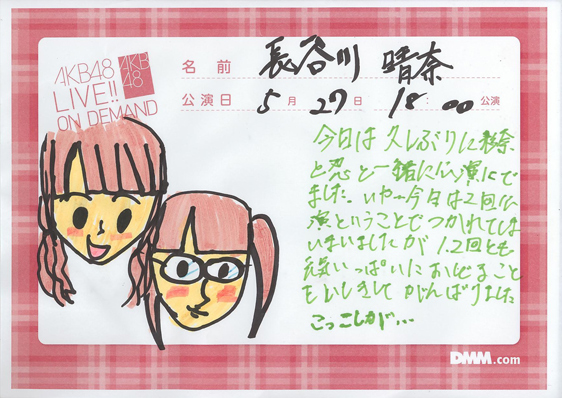 AKB48
LIVE!!
ON DEMAND
AKB
48
名前 長谷川 晴奈
公演日 5月 27日 18:00 公演
今日は久しぶりに
と忍と一緒に公演にで
ました。いや〜今日は2回公
演ということでつかれてしま
いまいましたが1.2回とも
元気いっぱいに おどること
をいしきして がんばりました
DMM.com